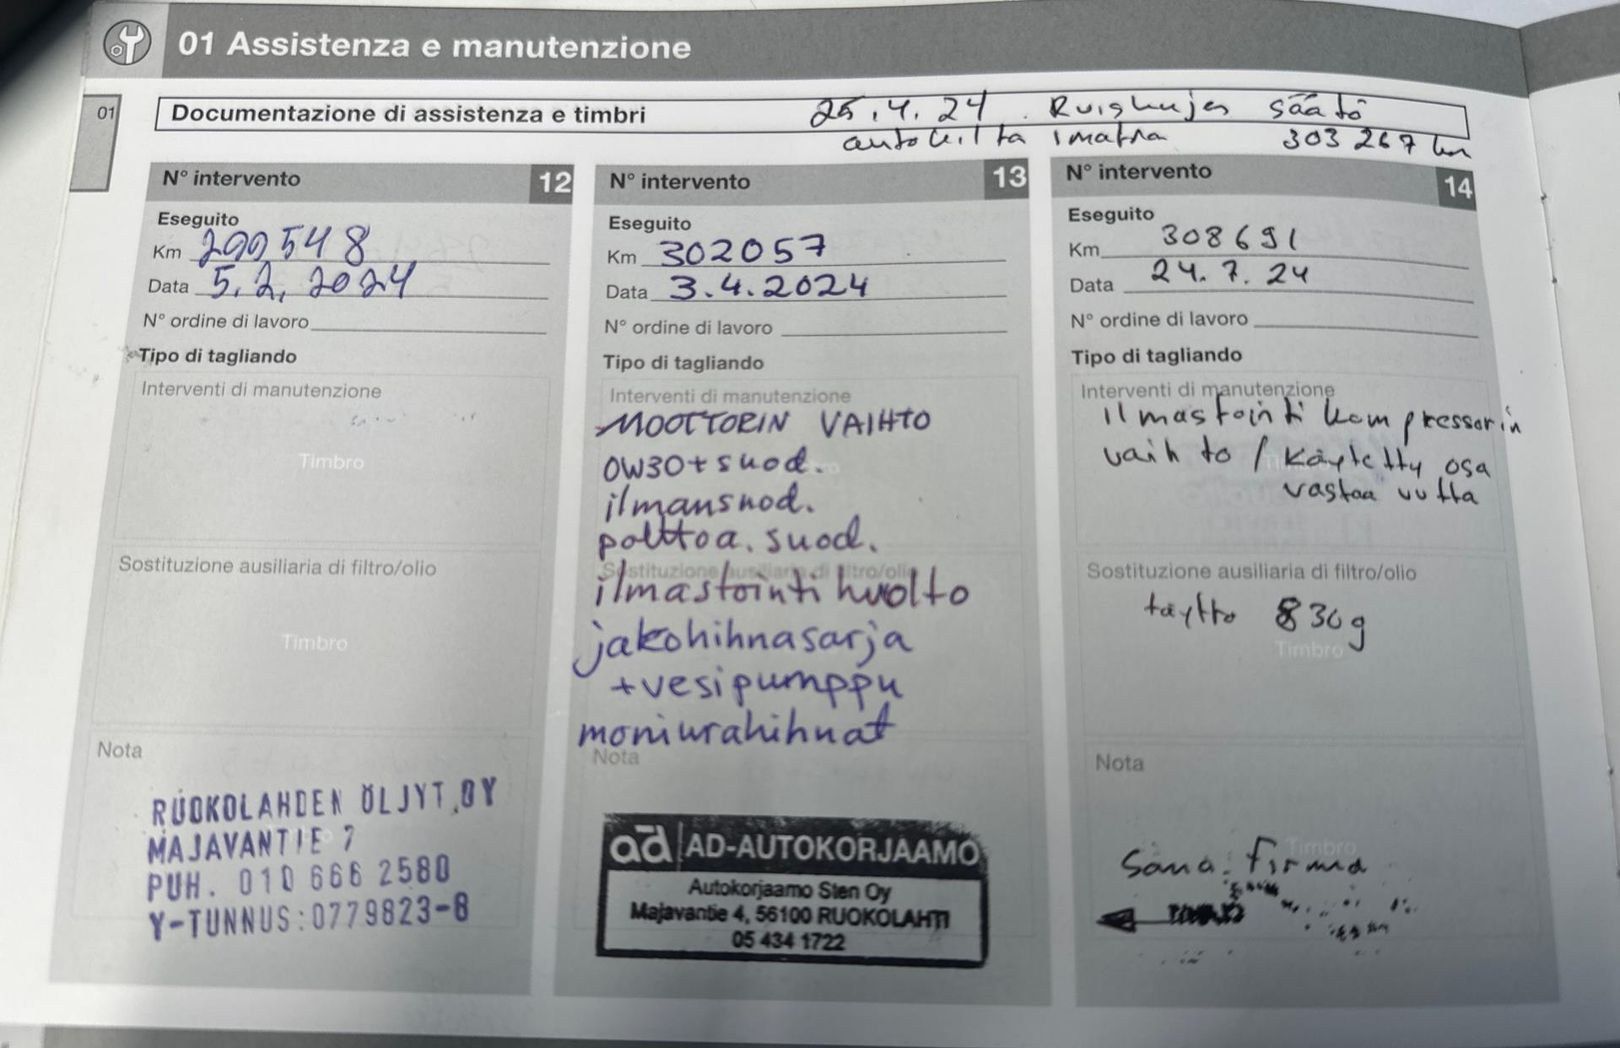 01 Assistenza e manutenzione
01
Documentazione di assistenza e timbri
25.4.24 Ruiskujen säätö
autokilta imatra 303 267 km
N° intervento 12
Eseguito
Km 299548
Data 5.2.2024
N° ordine di lavoro
Tipo di tagliando
Interventi di manutenzione
Timbro
Sostituzione ausiliaria di filtro/olio
Timbro
Nota
RUOKOLAHDEN ÖLJYT OY
MAJAVANTIE 7
PUH. 010 666 2580
Y-TUNNUS:0779823-8
N° intervento 13
Eseguito
Km 302057
Data 3.4.2024
N° ordine di lavoro
Tipo di tagliando
Interventi di manutenzione
MOOTTORIN VAIHTO
0W30+suod.
ilmansuod.
polttoa. suod.
Sostituzione ausiliaria di filtro/olio
ilmastointi huolto
jakohihnasarja
+vesipumppu
moniurahihnat
Nota
ad AD-AUTOKORJAAMO
Autokorjaamo Sten Oy
Majavantie 4, 56100 RUOKOLAHTI
05 434 1722
N° intervento 14
Eseguito
Km 308691
Data 24.7.24
N° ordine di lavoro
Tipo di tagliando
Interventi di manutenzione
ilmastointi kompressorin
vaihto / käytetty osa
vastaa uutta
Sostituzione ausiliaria di filtro/olio
täyttö 830g
Timbro
Nota
Timbro
Sama firma